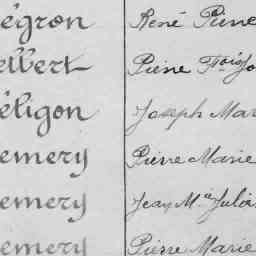 égron René Pierre
elbert Pierre Fois Jo
éligon Joseph Mar
emery Pierre Marie
emery Jean Mie Julie
emery Pierre Marie